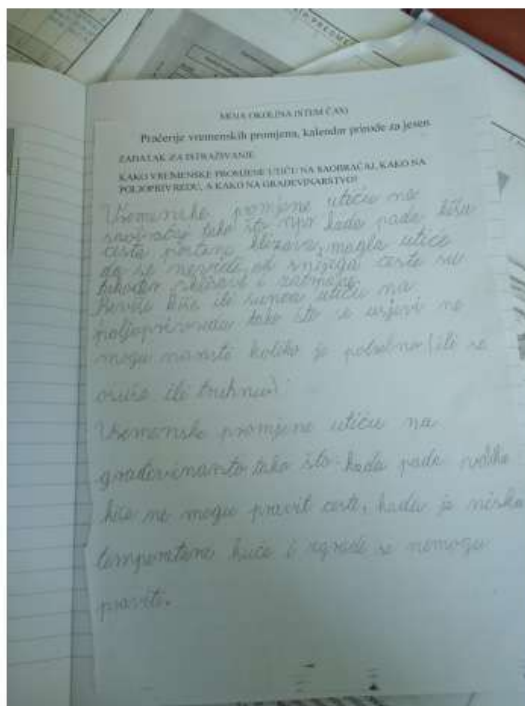 MOJA OKOLINA (STEM ČAS)
Praćenje vremenskih promjena, kalendar prirode za jesen
ZADATAK ZA ISTRAŽIVANJE:
KAKO VREMENSKE PROMJENE UTIČU NA SAOBRAĆAJ, KAKO NA
POLJOPRIVREDU, A KAKO NA GRAĐEVINARSTVO?
Vremenske promjene utiču na
saobraćaj tako što npr kada pada kiša
cesta postane klizava, magla utiče
da se nevidi, od snijega ceste su
također klizave i
kiše ili sunca utiču na
poljoprivredu tako što se usjevi ne
mogu koliko je potrebno (ili se
osuše ili truhnu).
Vremenske promjene utiču na
građevinarsto tako što kada pada velika
kiša ne mogu pravit ceste, kada je niska
temperatura kuće i zgrade se nemogu
praviti.